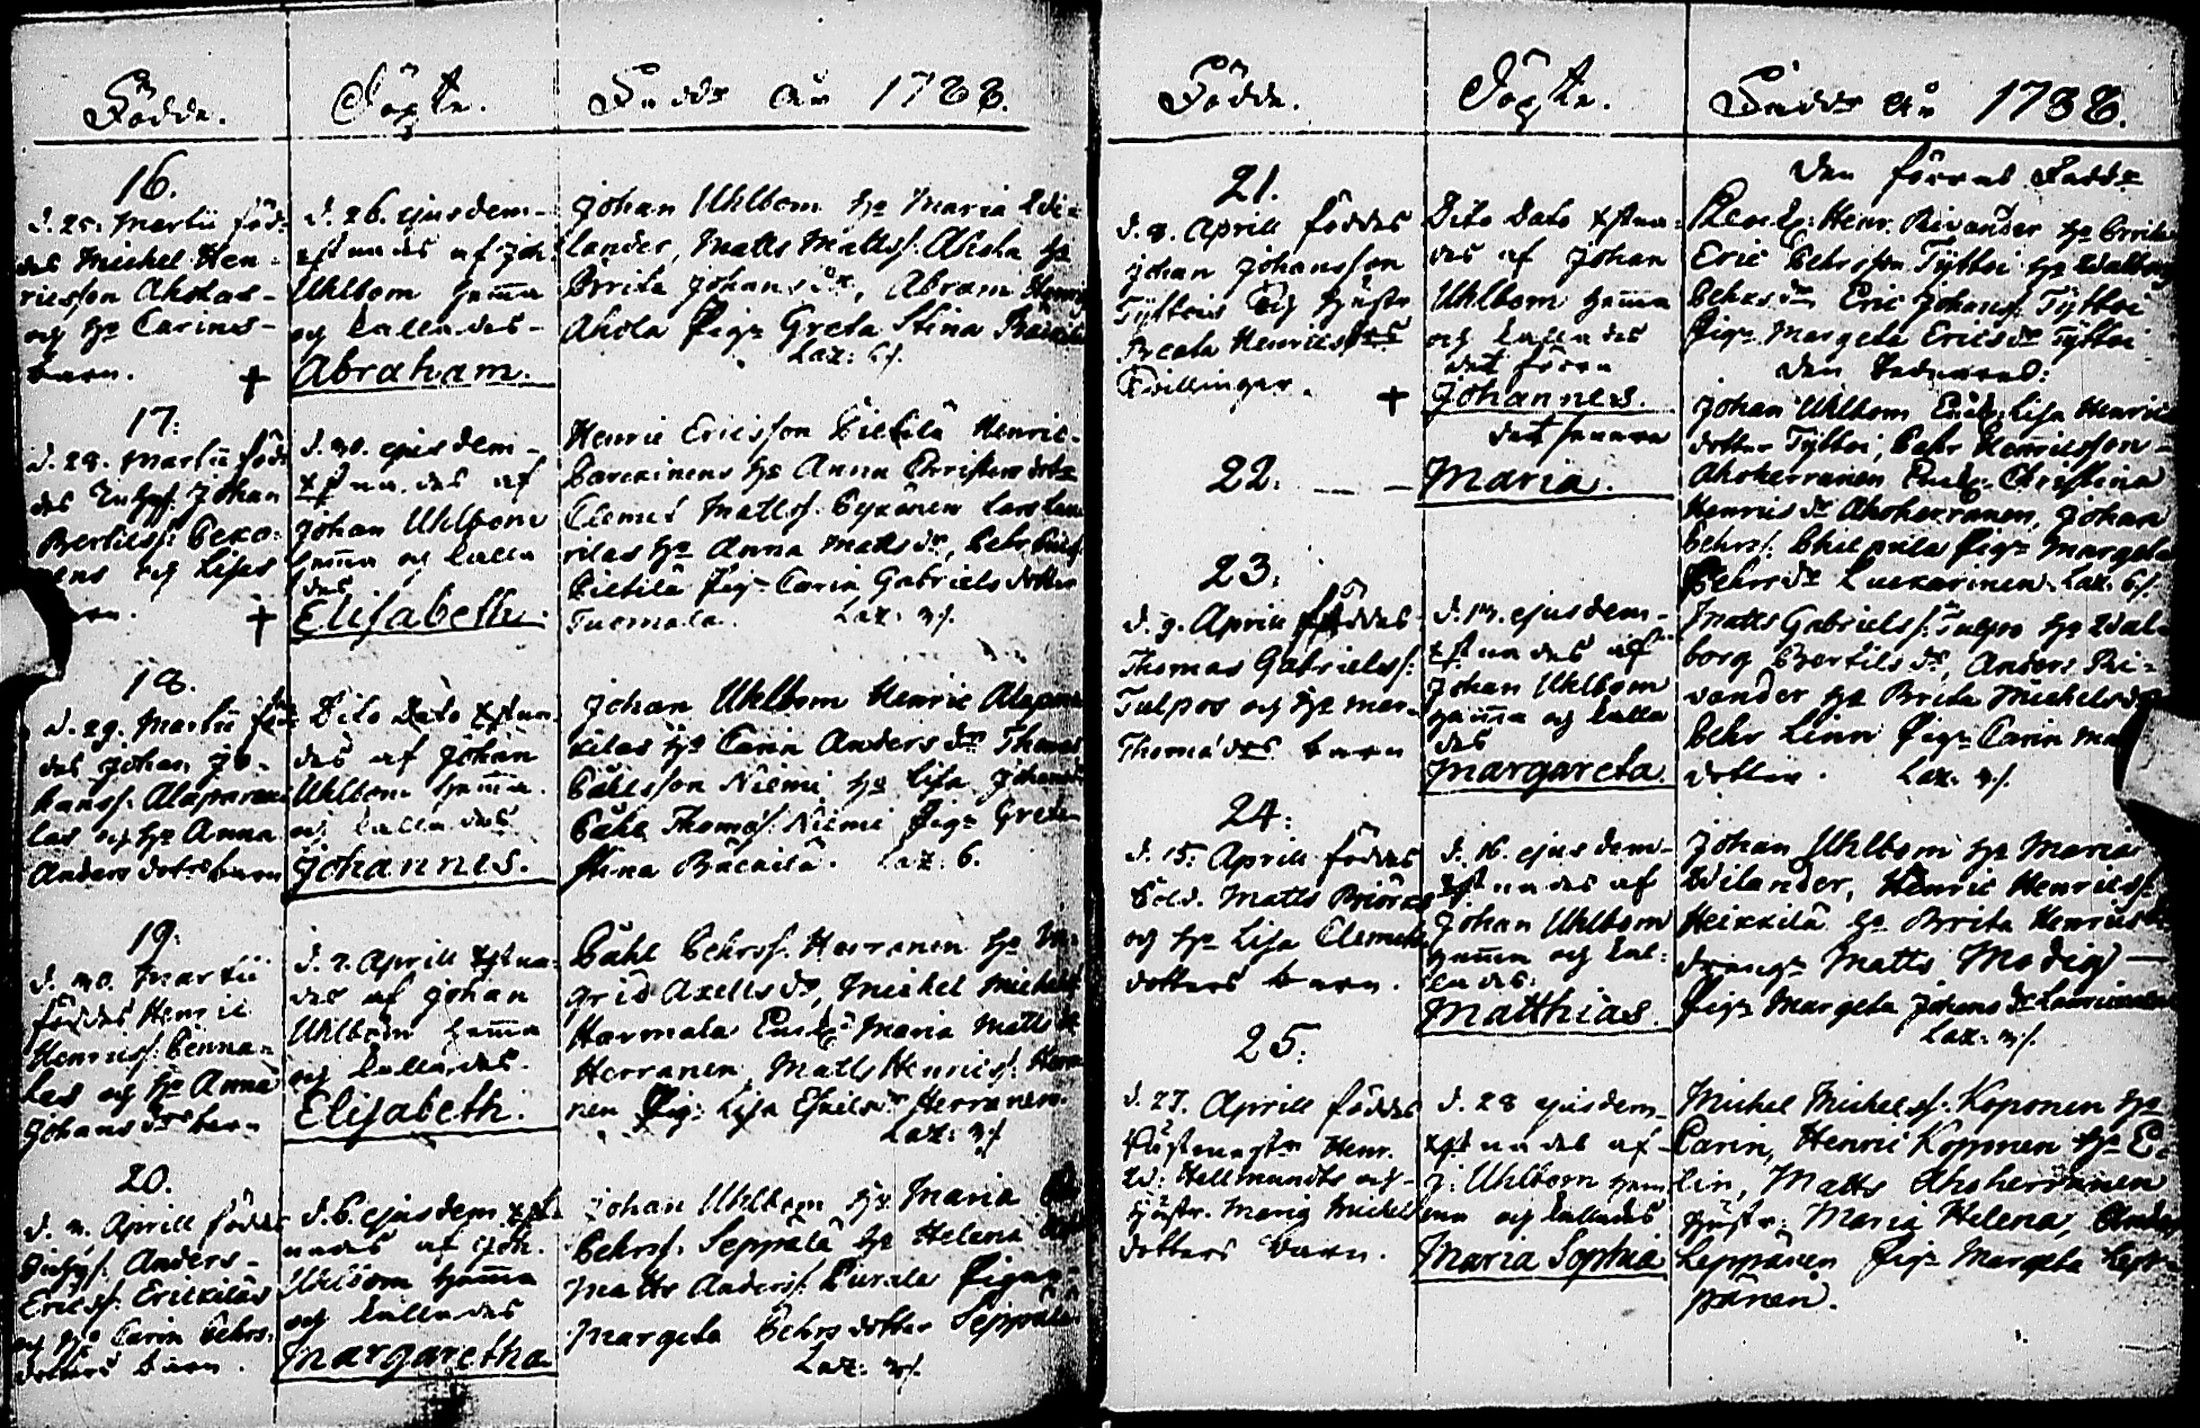 Födde. Döpte. Faddr År 1788.
16.
d. 25. Martii föd-
des Michel Hen-
ricsson Aholas-
og h:o Carins-
barn. +
d. 26. ejusdem-
xstnades af Joh:
Uhlbom hema
og kallades-
Abraham.
Johan Uhlbom h:o Maria Wi-
lander, Matts Mattss. Ahola h:o
Brita Johans dr, Abram Henrics
Ahola Pig: Greta Stina
Lax: 6/.
17:
d. 28. Martii föd-
des Johan
Bertilss:
og Lisas
+
d. 30. ejusdem-
xstnades af
Johan Uhlbom
hema og kalla
des
Elisabeth.
Henric Ericsson Pietilä Henric-
h:o Anna Christersdotr
Clemet Mattss. Pyxönen Lars Lau
rilas h:o Anna Matts dr, Pehr
Pietilä Pig: Carin Gabriels dotter
Tuomala. Lax: 3/.
18.
d. 29. Martii föd
des Johan Jo-
hanss.
las og h:o Anna
Anders dotrs barn
Dito Dato xstna-
des af Johan
Uhlbom hema.
og kallades
Johannes.
Johan Uhlbom Henric
kilas h:o Carin Anders dr Thomas
Påhlsson Niemi h:o Lisa Johans
Påhl Thomæs. Niemi Pig: Greta
Stina Lax: 6.
19:
d. 30. Martii
föddes Henric
Henricss: Penna-
las og h:o Anna
Johans drs barn
d. 2. Aprill xstna-
des af Johan
Uhlbom hema
og kallades.
Elisabeth.
Påhl Pehrss. Herranen h:o In-
grid Axells dr, Michel Michelss
Harmala Maria Matts dr
Herranen, Matts Henricss. Herra
nen Pig: Lisa Herranen.
Lax: 3/.
20.
d. 3. Aprill föddes
Anders-
Ericss. Erickiläs
og h:o Carin Pehrs-
dotters barn.
d. 6. ejusdem xst
nades af Joh.
Uhlbom hema
og kallades
Margaretha
Johan Uhlbom h:o Maria
Pehrss. Seppälä h:o Helena
Matts Anderss. Purala Pigan
Margeta Pehrs dotter Seppälä
Lax: 3/.
Födde. Döpte. Faddr År 1788.
21.
d. 8. Aprill föddes
Johan Johansson
Tyttois og Hustr
Beata Henricsdrs
Tvillingar. +
Dito Dato xstna-
des af Johan
Uhlbom hema
og kallades
det förra
Johannes.
det senare
22. — — Maria.
Den förras Faddr
Henr. Rivander h:o Brita
Eric Pehrsson Tyttoi h:o Walborg
Pehrs dr Eric Johanss. Tyttoi
Pig: Margeta Erics dr Tyttoi
Den Senares:
Johan Uhlbom Lisa Henrics
dotter Tyttoi, Pehr Henricsson-
Ahokerranen Christina
Henrics dr Ahokerranen, Johan
Pehrss. Pig: Margeta
Pehrs dr Luckarinen. Lax. 6/.
23.
d. 9. Aprill föddes
Thomas Gabrielss.
Tulpos og h:o Mar-
Thomæ drs barn
d. 13. ejusdem-
xstnades af
Johan Uhlbom
hema og kalla
des
Margareta
Matts Gabrielss. Tulpo h:o Wal-
borg Bertils dr, Anders Ri-
vander h:o Brita Michels dr
Pehr Linn Pig: Carin
dotter. Lax. 3/.
24.
d. 15. Aprill föddes
Sold. Matts
og h:o Lisa Clemets
dotters barn.
d. 16. ejusdem-
xstnades af
Johan Uhlbom
hema og kal-
lades:
Matthias.
Johan Uhlbom h:o Maria
Wilander, Henric Henricss.
Heikkilä h:o Brita Henrics dr
dräng: Matts Modig —
Pig: Margeta Johans dr
Lax: 3/.
25.
d. 27. Aprill föddes
Henr.
W: Hellmundts og-
Hustr. Maria Michels
dotters barn.
d. 28 ejusdem-
xstnades af-
J: Uhlbom hem
ma og kallades
Maria Sophia
Michel Michelss. Koponen h:o
Carin, Henric Koponen h:o E-
lin, Matts Ahokerranen
Hustr: Maria Helena, Anders
Leppänen Pig: Margeta Lep-
pänen.